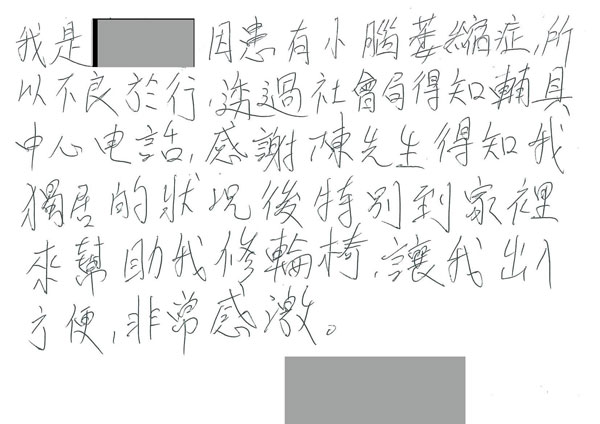 我是 因患有小腦萎縮症,所
以不良於行,透過社會局得知輔具
中心电話,感謝陳先生得知我
獨居的狀況後特別到家裡
來幫助我修輪椅,讓我出入
方便,非常感激。